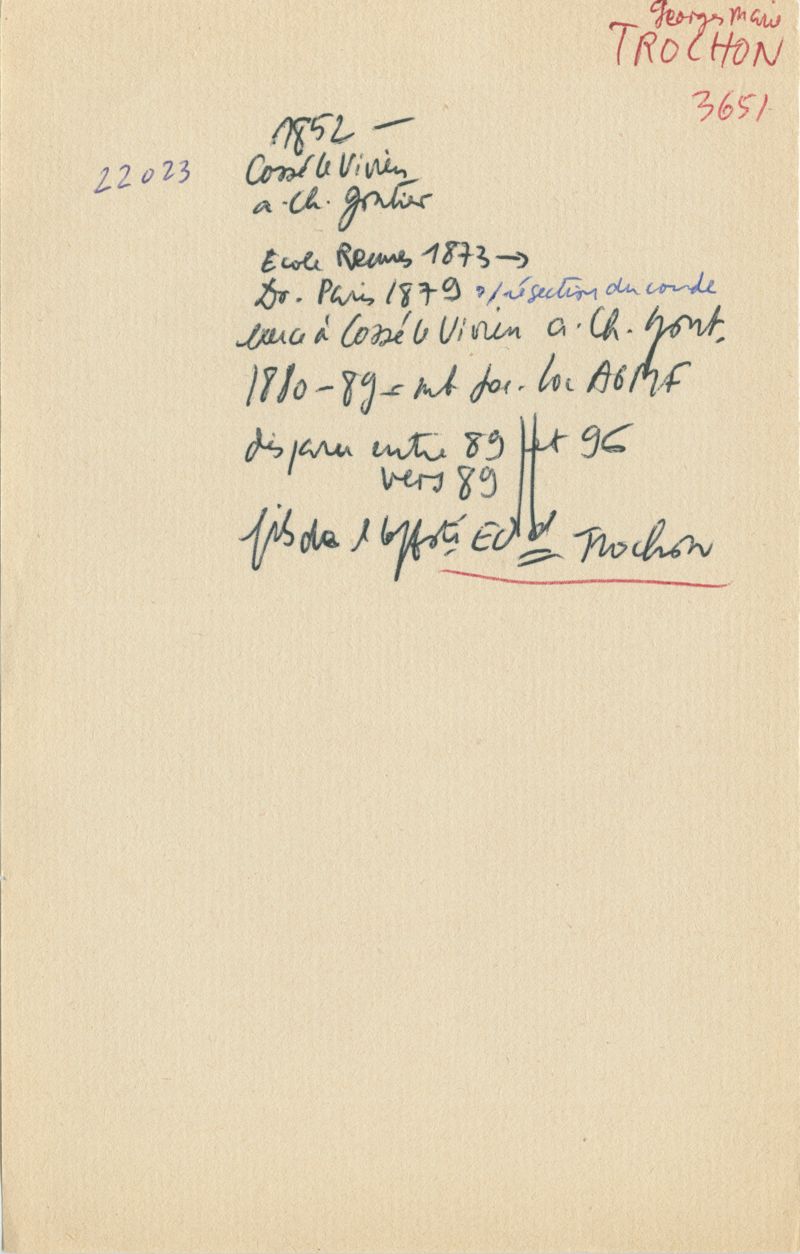 Georges Marie
TROCHON
3651
1852 —
22023
Cossé le Vivien
a. Ch. Gontier
Ecole Rennes 1873 →
Dr. Paris 1879 s/ résection du coude
exerce à Cossé le Vivien a. Ch. Gont.
1880 - 89 = mb soc. loc AGMF
disparu entre 89 et 96
vers 89
fils de l' Ed Trochon